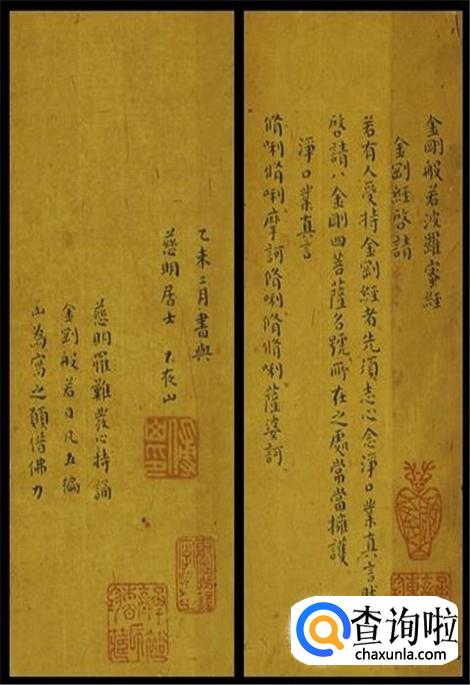 金剛般若波羅蜜經
金剛經啓請
若有人受持金剛經者先須志心念淨口業真言
啓請八金剛四菩薩名號所在之處常當擁護
淨口業真言
脩唎脩唎摩訶脩唎脩脩唎薩婆訶
乙未二月書與
慈明居士 不夜山
慈明罹難發心持誦
金剛般若日凡五徧
山為寫之願借佛力
查询啦
chaxunla.com